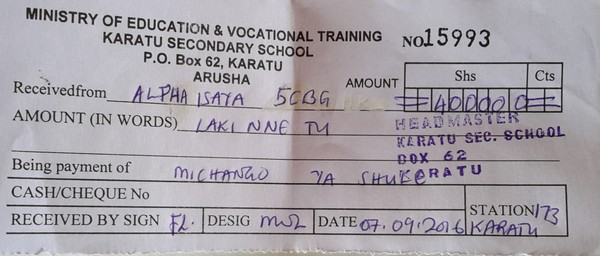 MINISTRY OF EDUCATION & VOCATIONAL TRAINING
KARATU SECONDARY SCHOOL
P.O. Box 62, KARATU
ARUSHA
NO.15993
Receivedfrom ALPHA ISAYA 5CBG AMOUNT Shs Cts
=400000=
AMOUNT (IN WORDS) LAKI NNE TU
HEADMASTER
KARATU SEC. SCHOOL
BOX 62
KARATU
Being payment of MICHANGO YA SHULE
CASH/CHEQUE No
RECEIVED BY SIGN DESIG DATE 07.09.2016 STATION 173 KARATU